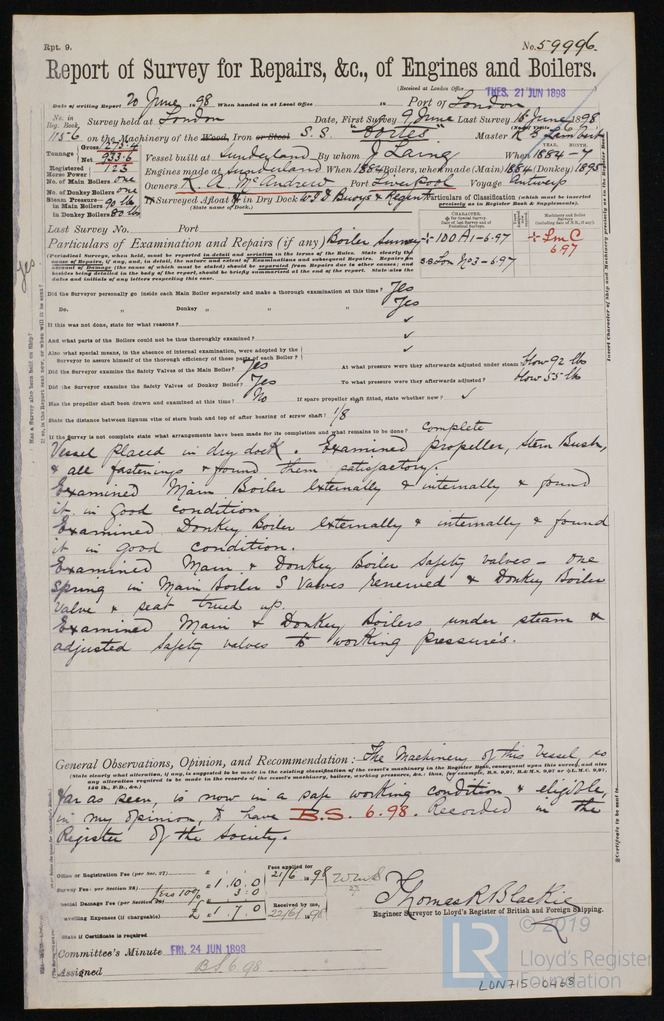 Rpt. 9.
No. 59996.
Report of Survey for Repairs, &c., of Engines and Boilers.
(Received at London Office TUES. 21 JUN 1898
Date of writing Report 20 June 1898 When handed in at Local Office 18 Port of London
No. in Reg. Book 1156
Survey held at London Date, First Survey 9 June Last Survey 15 June 1898
on the Machinery of the Wood, Iron or Steel S.S. Master
Tonnage Gross 1273.4 Net 933.6
Vessel built at Sunderland By whom J Laing When 1884-7
Registered Horse Power 123
Engines made at Sunderland When 1884 Boilers, when made (Main) 1884 (Donkey) 1895
No. of Main Boilers one
Owners R. A. McAndrew Port Liverpool Voyage Antwerp
No. of Donkey Boilers one
Steam Pressure in Main Boilers 90 lbs
in Donkey Boilers 80 lbs
If Surveyed Afloat or in Dry Dock
(State name of Dock.)
Particulars of Classification (which must be inserted precisely as in Register Book & Supplements).
Last Survey No. Port
Particulars of Examination and Repairs (if any) Boiler Survey
+100A1-6.97
SS Lon No3-6.97
+LMC 6.97
Did the Surveyor personally go inside each Main Boiler separately and make a thorough examination at this time? Yes
Do. " Donkey " " " Yes
If this was not done, state for what reasons?
And what parts of the Boilers could not be thoroughly examined?
Also what special means, in the absence of internal examination, were adopted by the Surveyor to assure himself of the thorough efficiency of these parts of each Boiler?
Did the Surveyor examine the Safety Valves of the Main Boiler? Yes At what pressure were they afterwards adjusted under steam blow 92 lbs
Did the Surveyor examine the Safety Valves of Donkey Boiler? Yes To what pressure were they afterwards adjusted? blow 55 lbs
Has the propeller shaft been drawn and examined at this time? No If spare propeller shaft fitted, state whether new?
State the distance between lignum vitæ of stern bush and top of after bearing of screw shaft? 1/8
If the Survey is not complete state what arrangements have been made for its completion and what remains to be done? complete
Vessel placed in dry dock. Examined propeller, Stern Bush,
& all fastenings & found them satisfactory.
Examined Main Boiler externally & internally & found
it in Good condition
Examined Donkey Boiler externally & internally & found
it in Good condition.
Examined Main & Donkey Boiler Safety valves - One
Spring in Main Boiler S Valves renewed & Donkey Boiler
Valve & seat trued up.
Examined Main & Donkey Boilers under steam &
adjusted safety valves to working pressure's.
General Observations, Opinion, and Recommendation: The Machinery of this Vessel so
far as seen, is now in a safe working condition & eligible,
in my opinion, to have B.S. 6.98. Recorded in the
Register of the Society.
Office or Registration Fee (per Sec. 27)
Fees applied for 21/6 1898
Survey Fee (per Section 28) £ 1.10.0
less 10% 3.0
Special Damage Fee (per Section 28)
Travelling Expenses (if chargeable) £ 1.7.0
Received by me,
Thomas R Blackie
Engineer Surveyor to Lloyd's Register of British and Foreign Shipping.
State if Certificate is required
Committee's Minute FRI. 24 JUN 1898
Assigned BS 6.98
© 2019
LR
Lloyd's Register
Foundation
LON715-0468
Yes